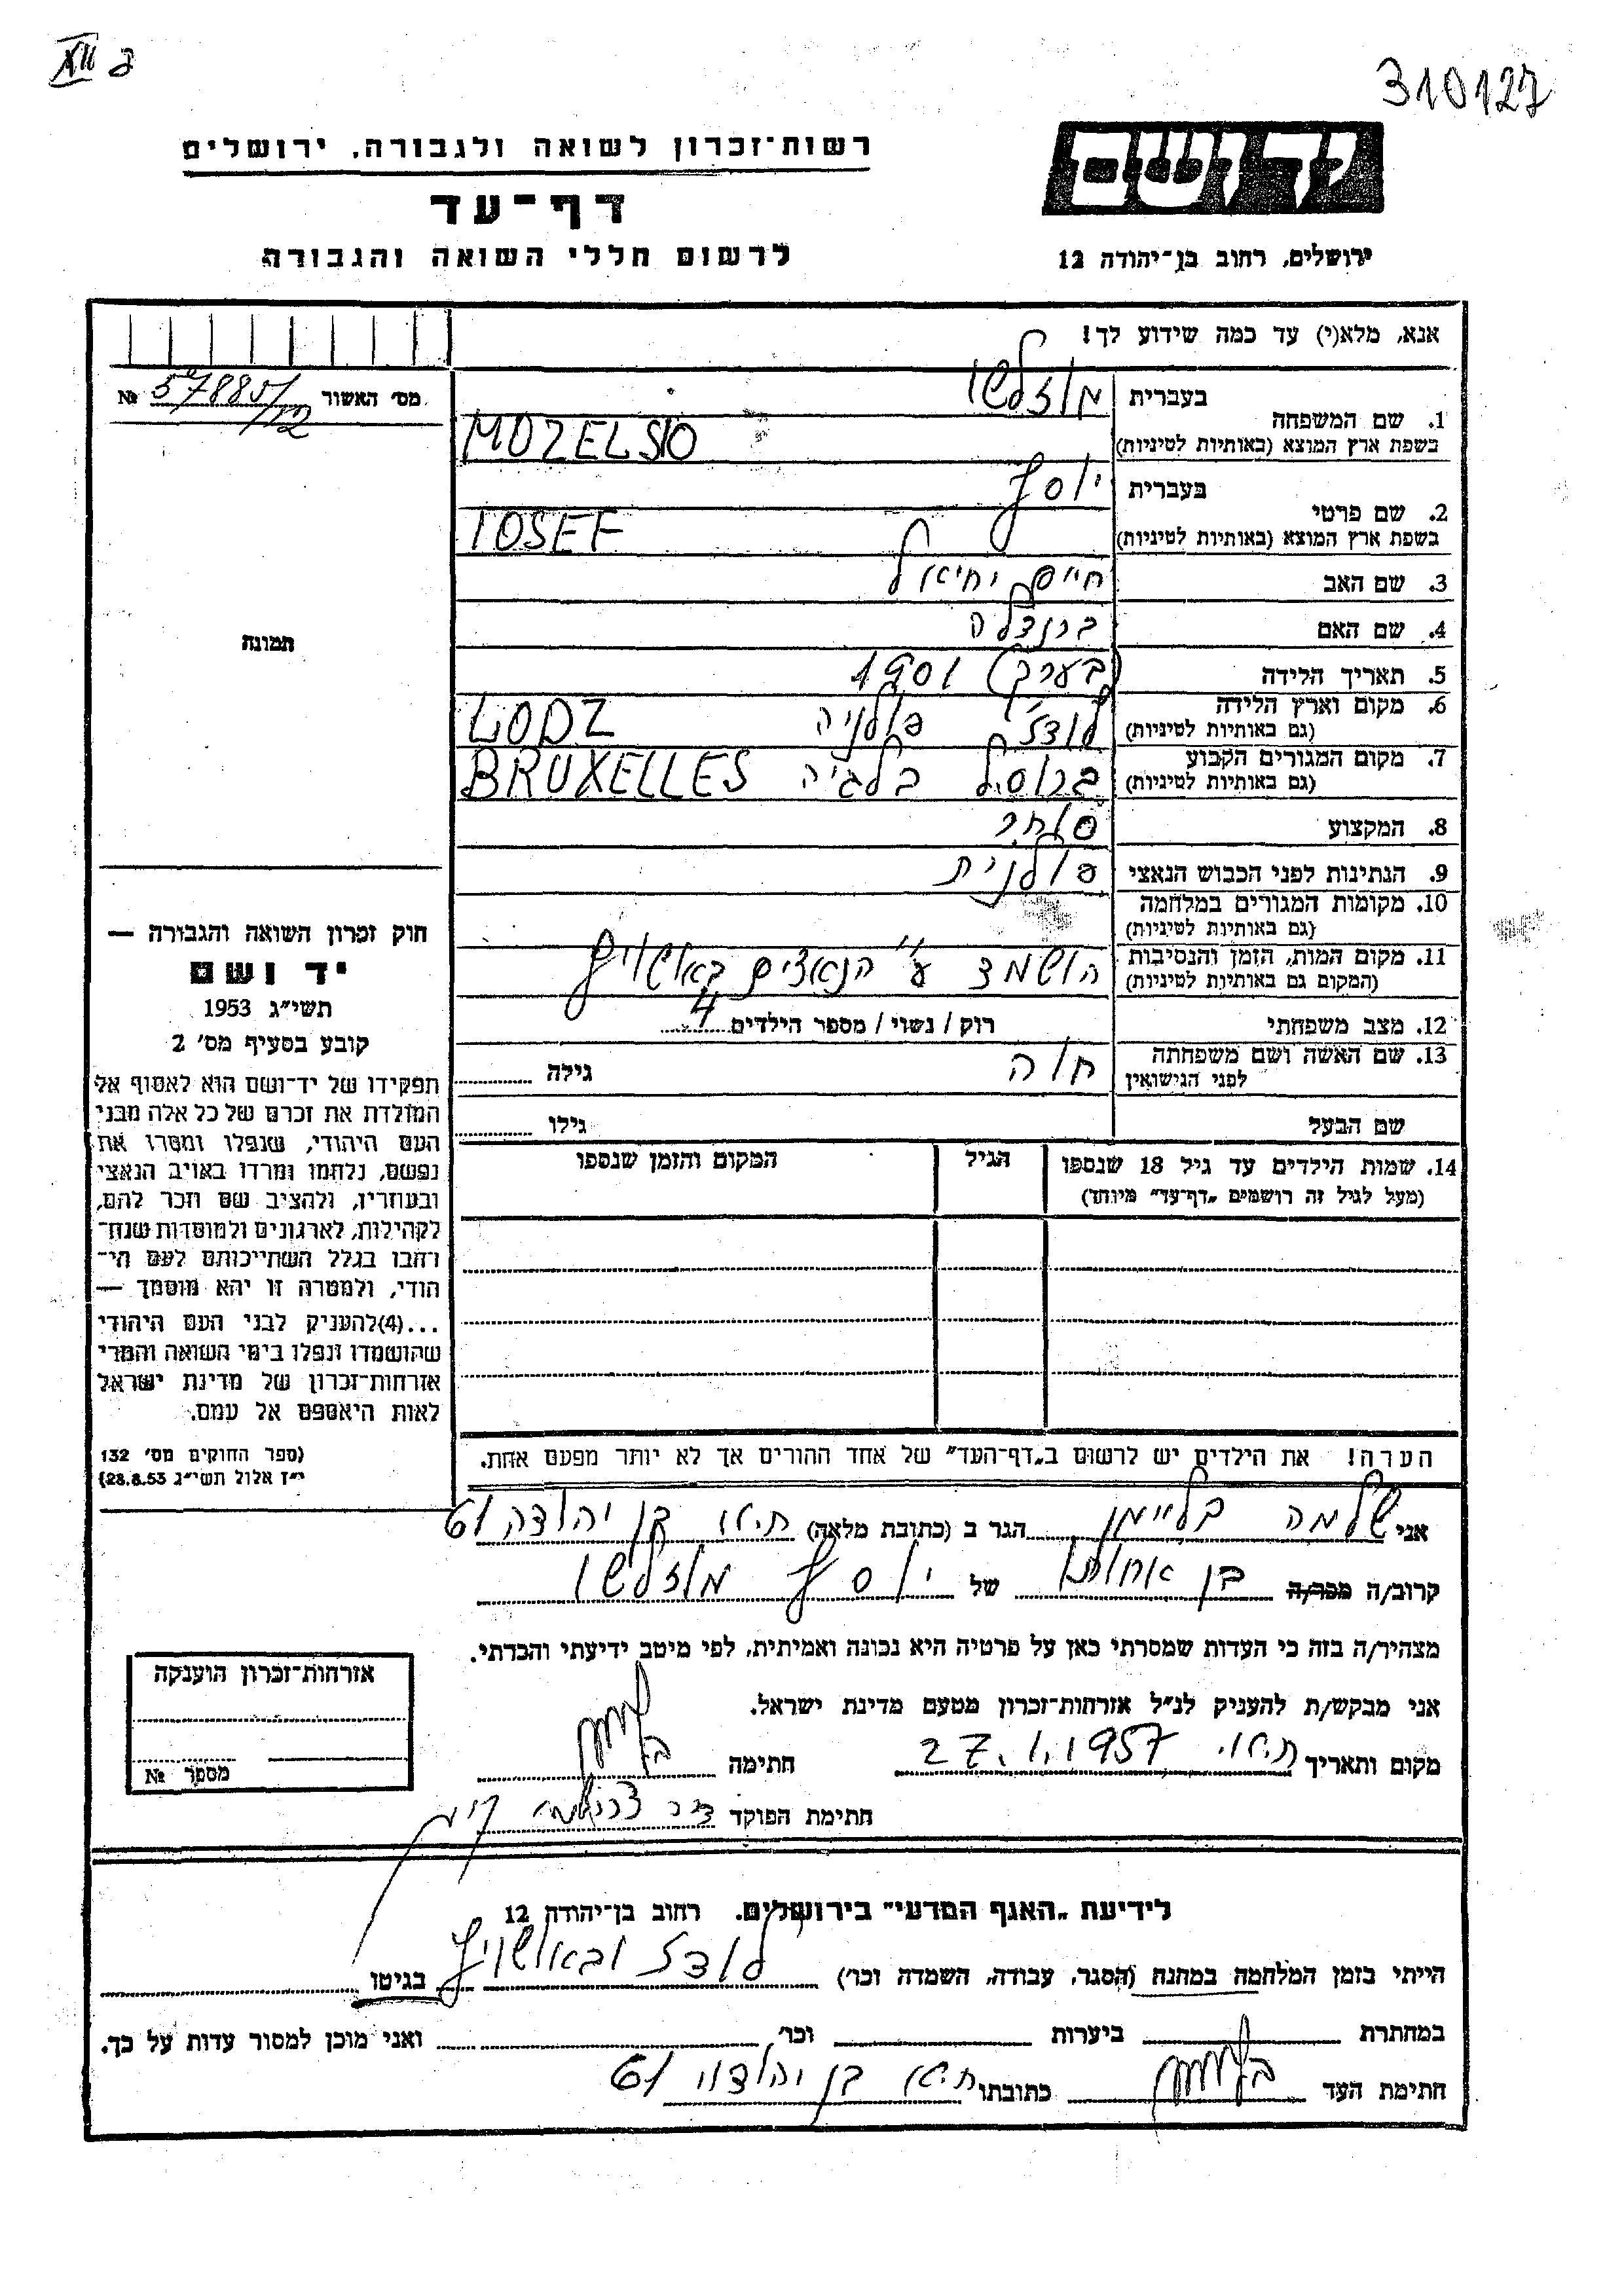 310127
יד ושם
ירושלים, רחוב בן־יהודה 12
רשות־זכרון לשואה ולגבורה, ירושלים
דף־עד
לרשום חללי השואה והגבורה
אנא, מלא(י) עד כמה שידוע לך!
מס׳ האשור 57885/12 №
1. שם המשפחה בעברית מוזלשו
בשפת ארץ המוצא (באותיות לטיניות) MOZELSIO
2. שם פרטי בעברית יוסף
בשפת ארץ המוצא (באותיות לטיניות) IOSEF
3. שם האב חיים יחיאל
4. שם האם ברנדלה
5. תאריך הלידה (בערך) 1901
6. מקום וארץ הלידה (גם באותיות לטיניות) לודז׳ פולניה LODZ
7. מקום המגורים הקבוע (גם באותיות לטיניות) ברוסל בלגיה BRUXELLES
8. המקצוע סוחר
9. הנתינות לפני הכבוש הנאצי פולנית
10. מקומות המגורים במלחמה (גם באותיות לטיניות)
11. מקום המות, הזמן והנסיבות (המקום גם באותיות לטיניות) הושמד ע״י הנאצים באושויץ
12. מצב משפחתי רוק / נשוי / מספר הילדים 4
13. שם האשה ושם משפחתה לפני הנישואין חוה גילה
שם הבעל גילו
14. שמות הילדים עד גיל 18 שנספו הגיל המקום והזמן שנספו
(מעל לגיל זה רושמים „דף־עד״ מיוחד)
הערה! את הילדים יש לרשום ב„דף־העד״ של אחד ההורים אך לא יותר מפעם אחת.
תמונה
חוק זכרון השואה והגבורה —
יד ושם
תשי״ג 1953
קובע בסעיף מס׳ 2
תפקידו של יד־ושם הוא לאסוף אל
המולדת את זכרם של כל אלה מבני
העם היהודי, שנפלו ומסרו את
נפשם, נלחמו ומרדו באויב הנאצי
ובעוזריו, ולהציב שם וזכר להם,
לקהילות, לארגונים ולמוסדות שנח־
רבו בגלל השתייכותם לעם הי־
הודי, ולמטרה זו יהא מוסמך —
...(4) להעניק לבני העם היהודי
שהושמדו ונפלו בימי השואה והמרי
אזרחות־זכרון של מדינת ישראל
לאות היאספם אל עמם.
(ספר החוקים מס׳ 132
י״ז אלול תשי״ג 28.8.53)
אני שלמה בליימן הגר ב (כתובת מלאה) ת״א בן יהודה 61
קרוב/ה מכר/ה בן אחותו של יוסף מוזלשו
מצהיר/ה בזה כי העדות שמסרתי כאן על פרטיה היא נכונה ואמיתית, לפי מיטב ידיעתי והכרתי.
אני מבקש/ת להעניק לנ״ל אזרחות־זכרון מטעם מדינת ישראל.
מקום ותאריך ת״א 27.1.1957 חתימה
חתימת הפוקד
אזרחות־זכרון הוענקה
מספר №
לידיעת „האגף המדעי״ בירושלים. רחוב בן־יהודה 12
הייתי בזמן המלחמה במחנה (הסגר, עבודה, השמדה וכו׳) לודז ובאושויץ בגיטו
במחתרת ביערות וכו׳ ואני מוכן למסור עדות על כך.
חתימת העד כתובתו ת״א בן יהודה 61